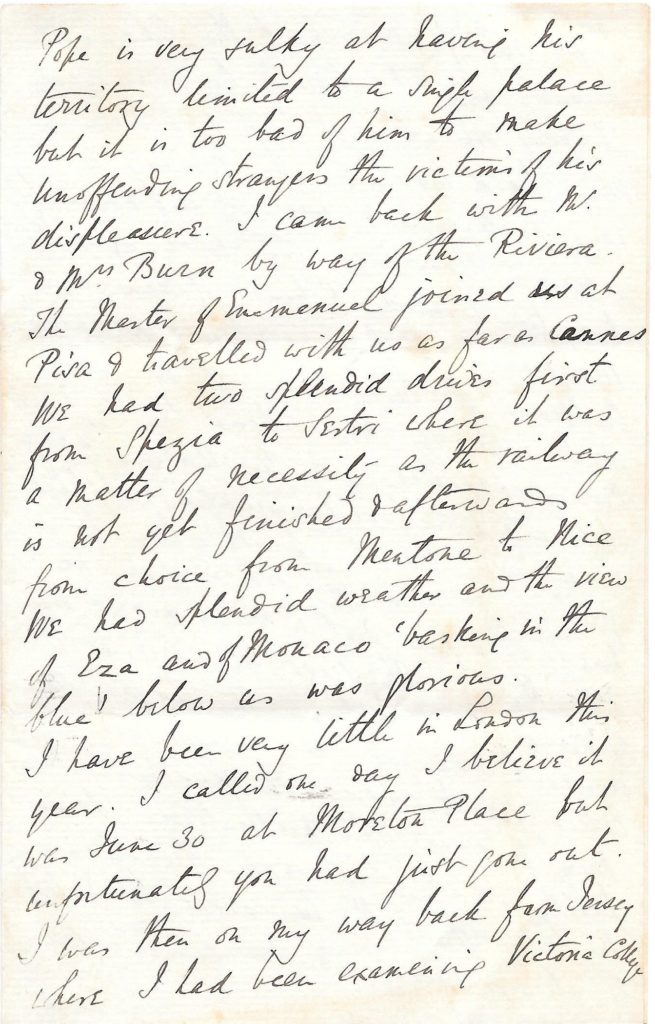 Pope is very sulky at having his
territory limited to a single palace
but it is too bad of him to make
unoffending strangers the victims of his
displeasure. I came back with Mr.
& Mrs Burn by way of the Riviera.
The Master of Emmanuel joined us at
Pisa & travelled with us as far as Cannes
We had two splendid drives first
from Spezia to Sestri where it was
a matter of necessity as the railway
is not yet finished & afterwards
from choice from Mentone to Nice
We had splendid weather and the view
of Eza and of Monaco 'basking in the
blue' below us was glorious.
I have been very little in London this
year. I called one day I believe it
was June 30 at Moreton Place but
unfortunately you had just gone out.
I was then on my way back from Jersey
where I had been examining Victoria College